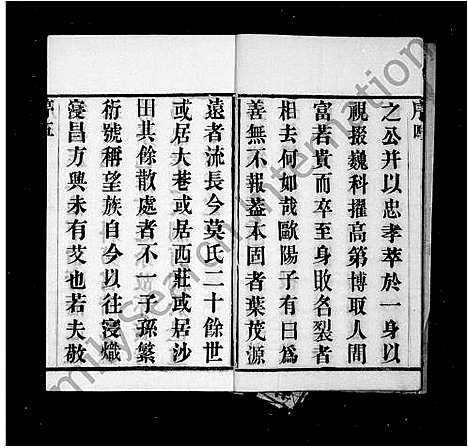 序四
之公幷以忠孝萃於一身以
視掇巍科擢高第博取人間
富若貴而卒至身敗名裂者
相去何如哉歐陽子有曰爲
善無不報蓋本固者葉茂源
遠者流長今莫氏二十餘世
或居大巷或居西莊或居沙
田其餘散處者不一子孫繁
衍號稱望族自今以往寖熾
寖昌方興未有艾也若夫敬
序五